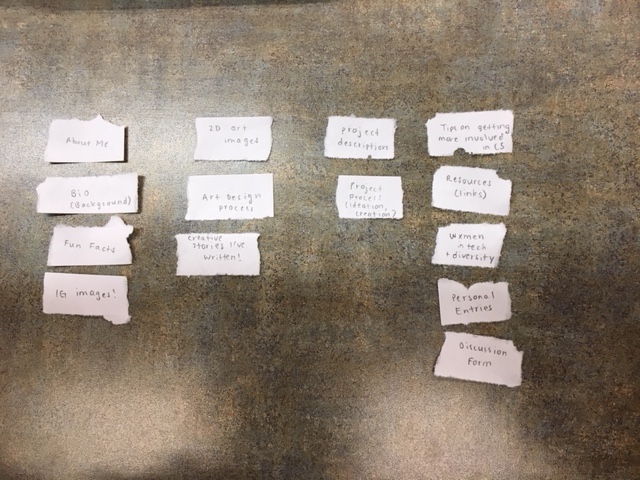 About Me
BiO
(Background)
Fun Facts
IG images!
2D art
images
Art Design
process
Creative
Stories I've
Written!
Project
description
Project
process
(ideation,
creation)
Tips on getting
more involved
in CS
Resources
(links)
Women
in tech
+ diversity
Personal
Entries
Discussion
Form